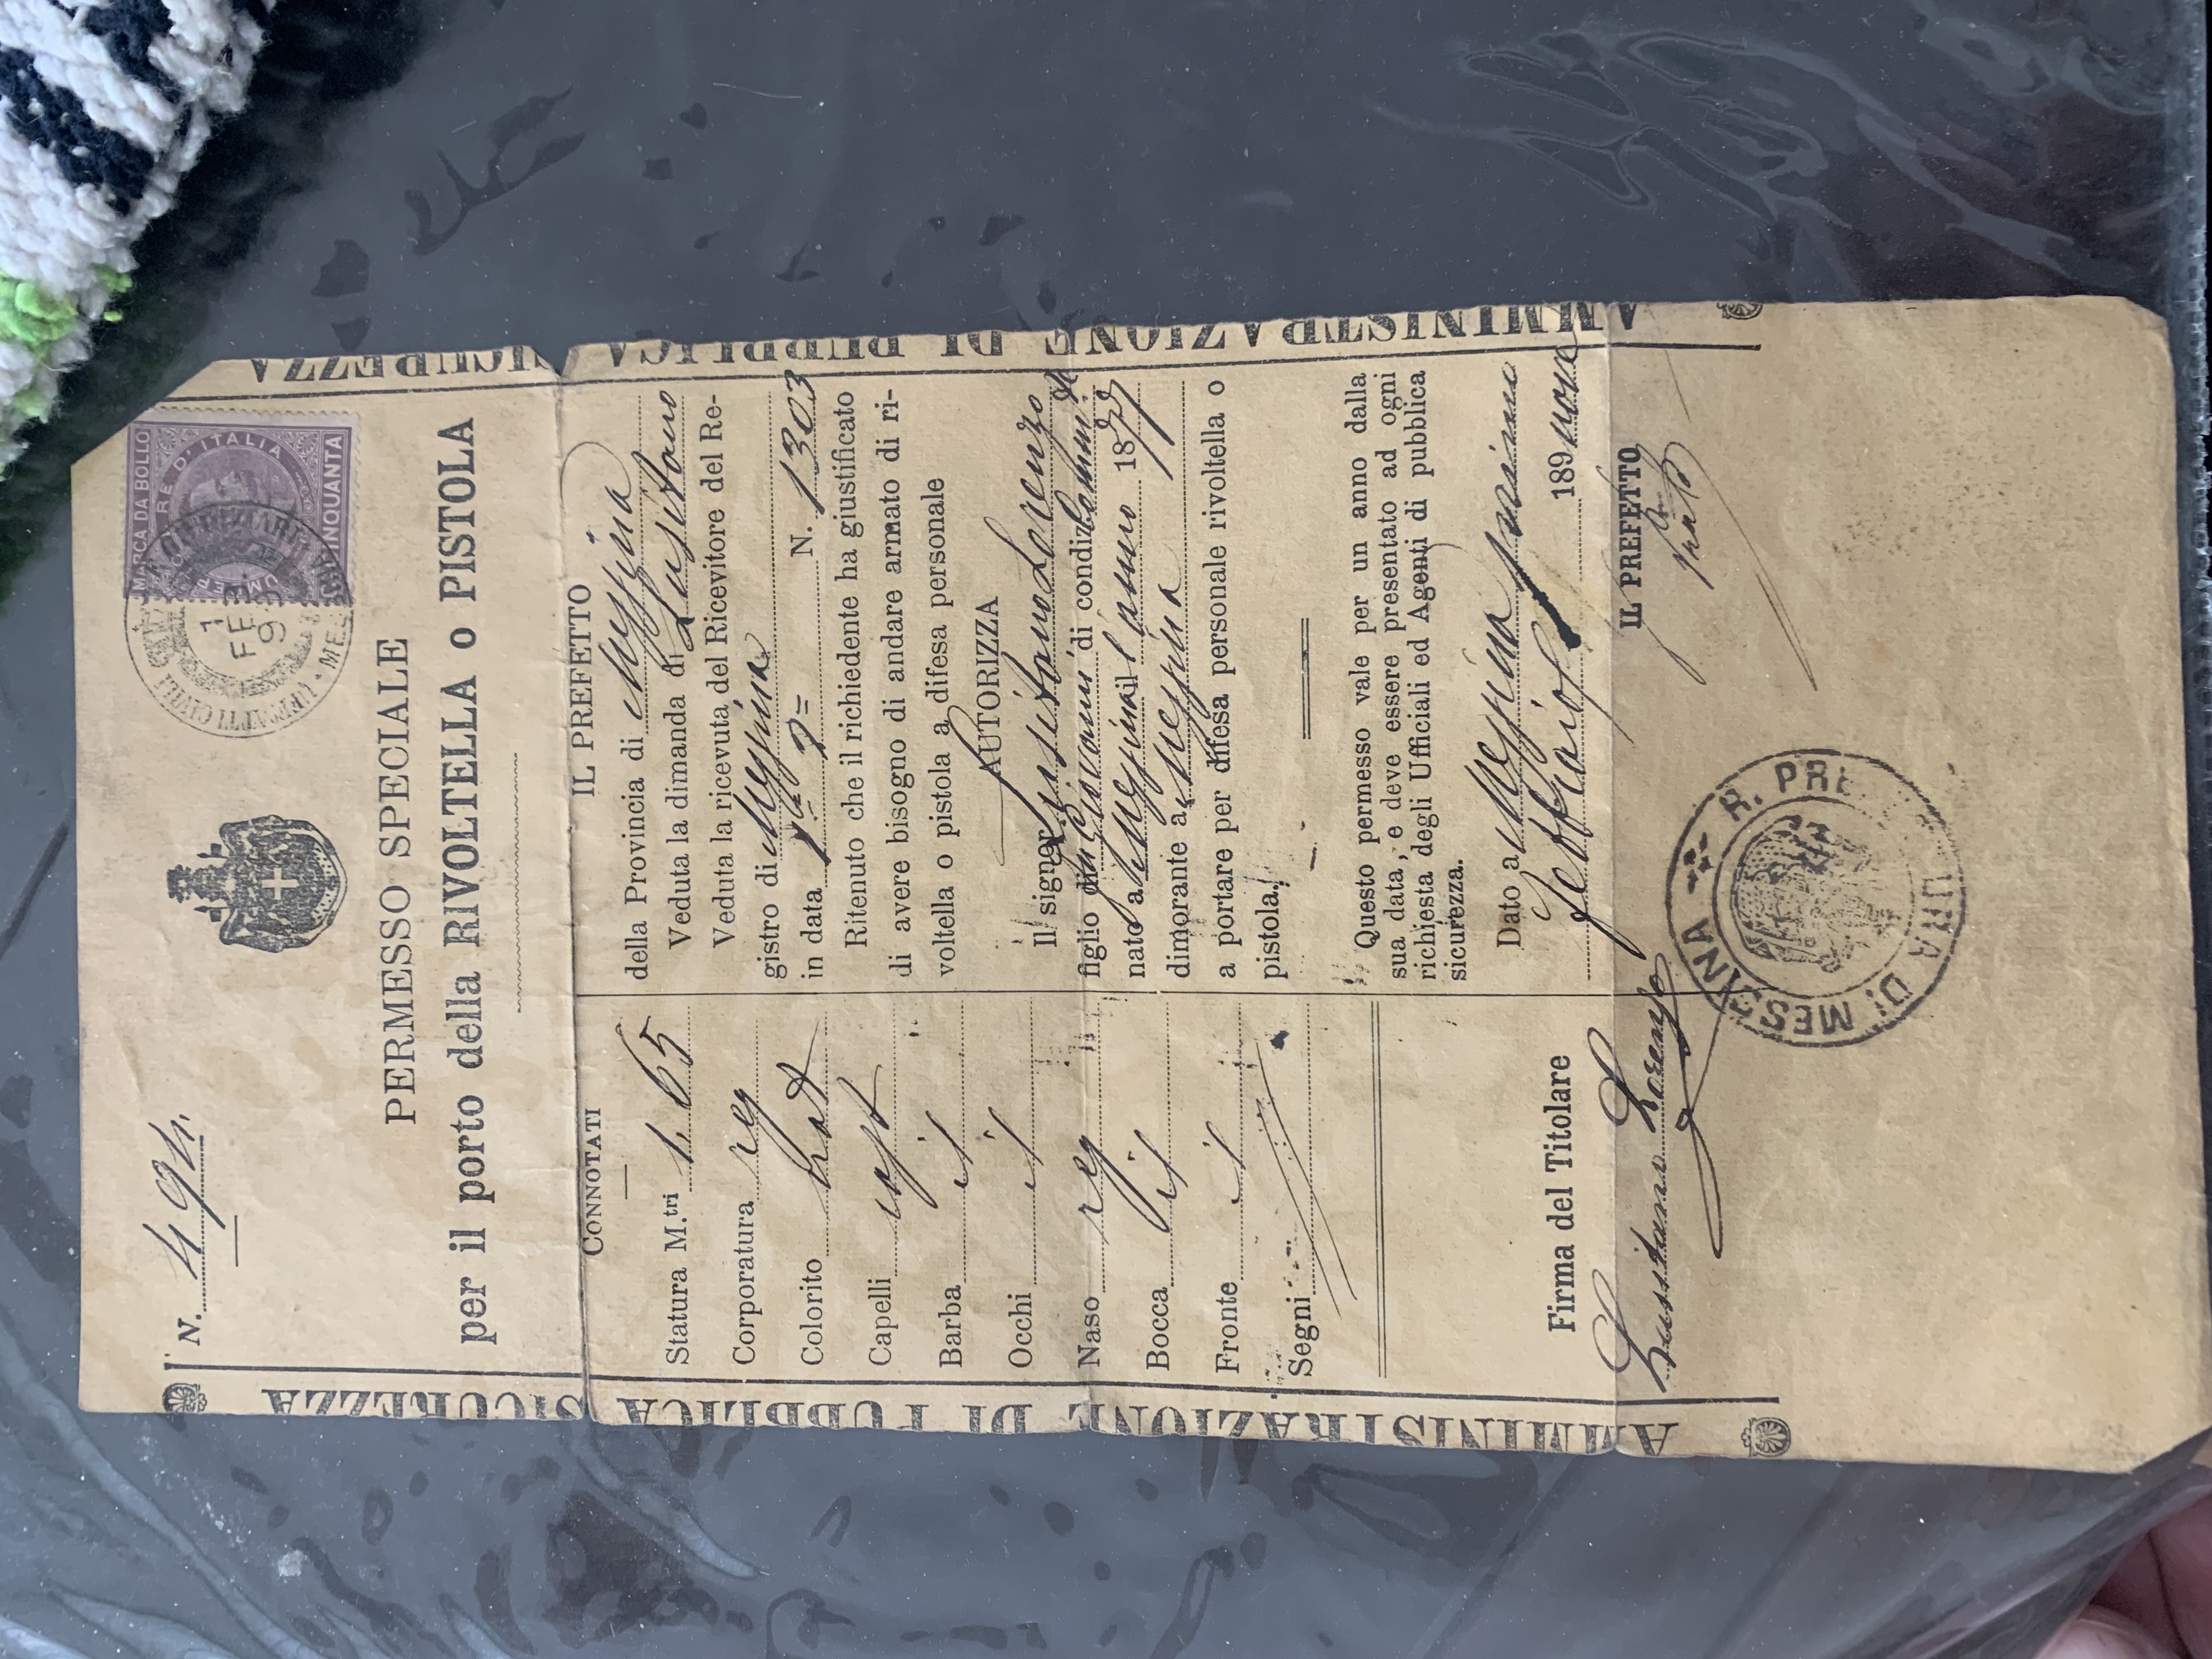 AMMINISTRAZIONE DI PUBBLICA SICUREZZA
N. 494
MARCA DA BOLLO
RE D'ITALIA
CINQUANTA
1
FE
9
PERMESSO SPECIALE
per il porto della RIVOLTELLA o PISTOLA
CONNOTATI
Statura M.tri 1.65
Corporatura reg
Colorito nat
Capelli cast
Barba id
Occhi id
Naso reg
Bocca id
Fronte id
Segni
Firma del Titolare
Lusitano Lorenzo
IL PREFETTO
della Provincia di Messina
Veduta la dimanda di Lusitano
Veduta la ricevuta del Ricevitore del Re-
gistro di Messina
in data N. 1303
Ritenuto che il richiedente ha giustificato
di avere bisogno di andare armato di ri-
voltella o pistola a difesa personale
AUTORIZZA
Il signor Lusitano Lorenzo
figlio di Giovanni di condiz.
nato a Messina il l'anno 1877
dimorante a Messina
a portare per difesa personale rivoltella o
pistola.
Questo permesso vale per un anno dalla
sua data, e deve essere presentato ad ogni
richiesta degli Ufficiali ed Agenti di pubblica
sicurezza.
Dato a Messina primo
Febbraio 189nove
IL PREFETTO
R. PREFETTURA DI MESSINA
AMMINISTRAZIONE DI PUBBLICA SICUREZZA